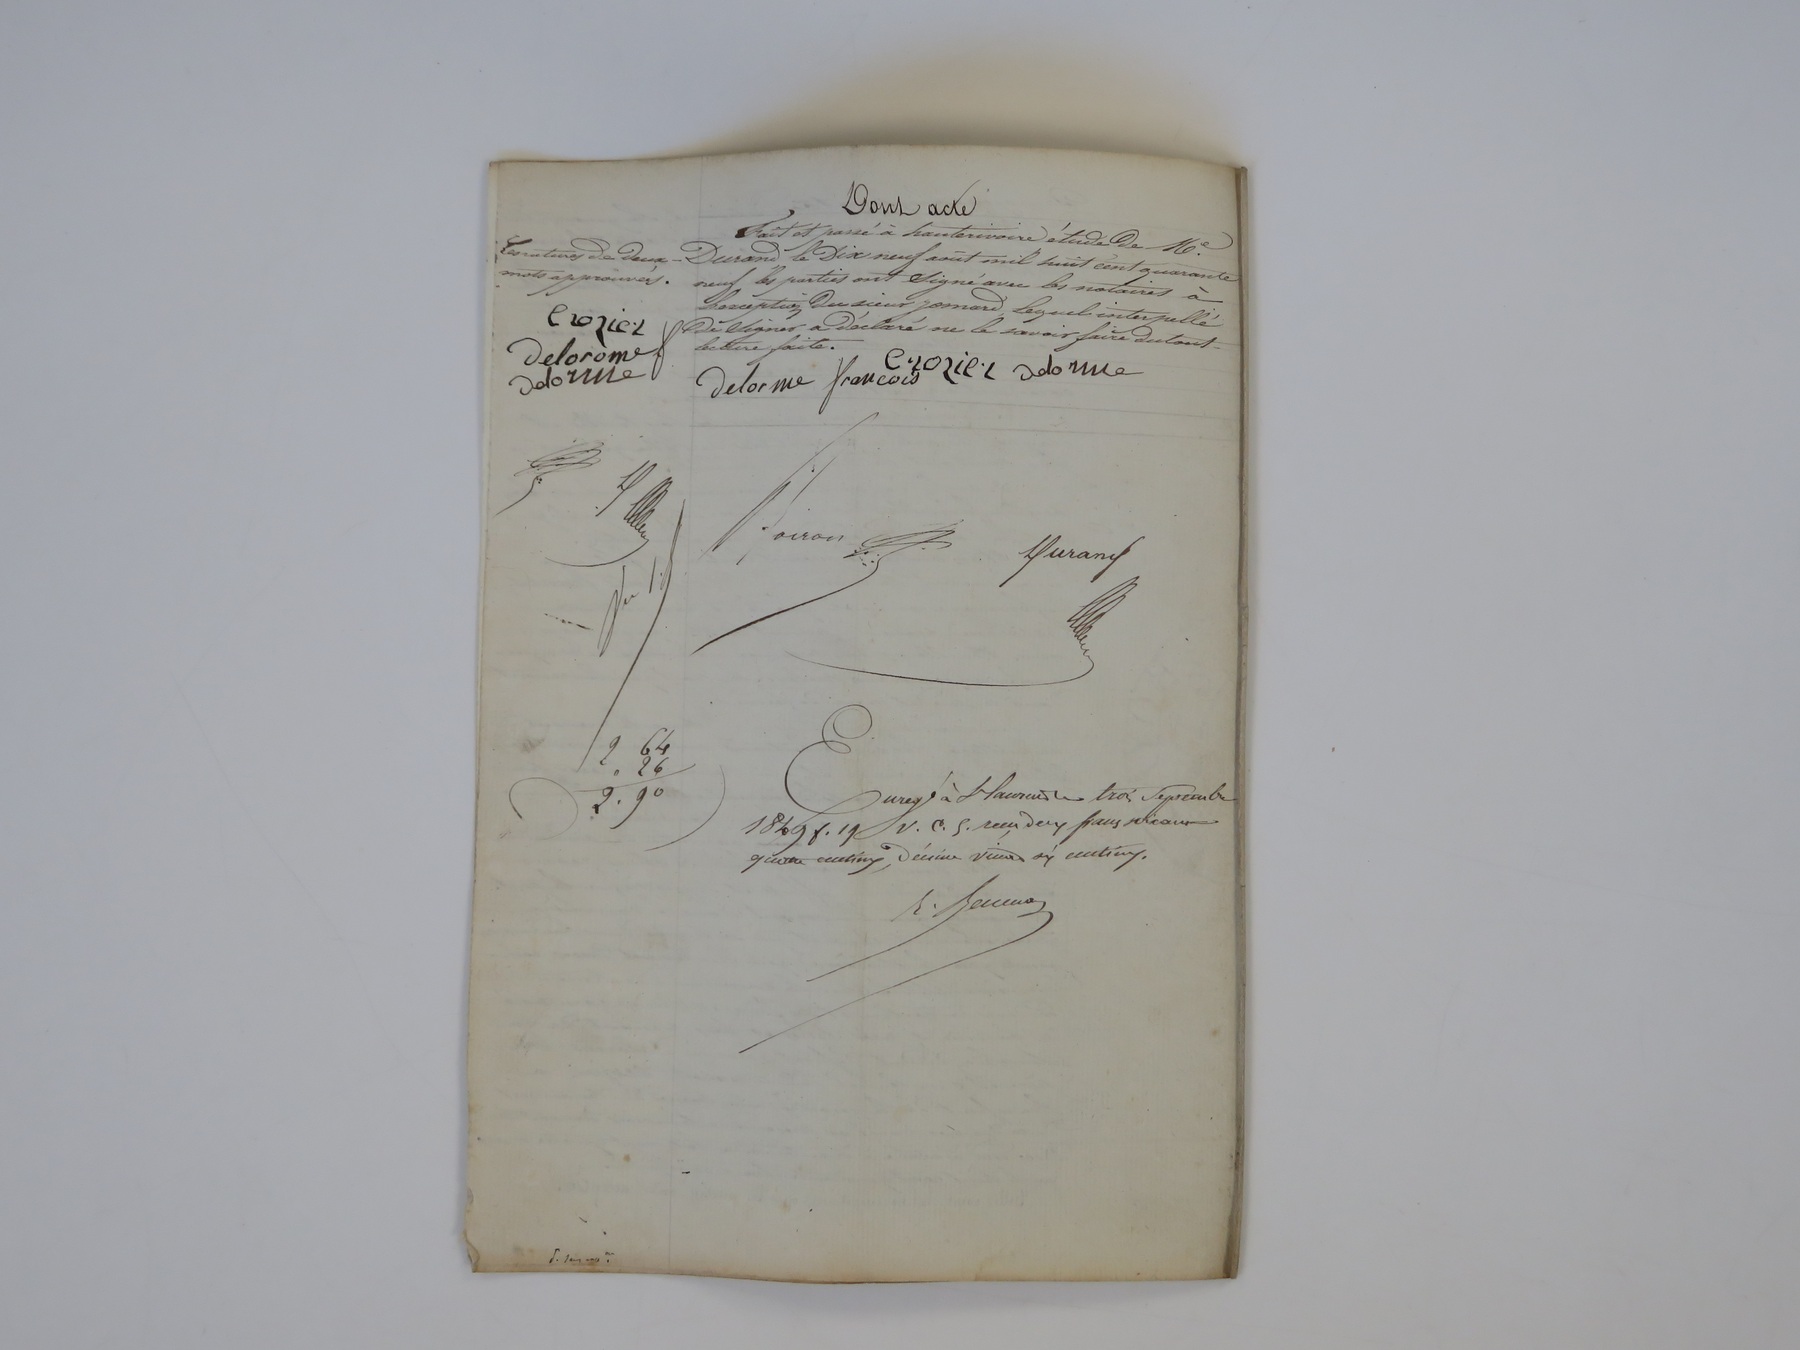 Dont acte
Fait et passé à hauterivoire étude de Me.
Durand le Dix neuf aout mil huit cent quarante
neuf les parties ont Signé avec les notaires à
l'exception du sieur jomard, lequel interpellé
de Signer a déclaré ne le savoir faire du tout
lecture faite.
ratures de deux
mots approuvés.
Crozier
delorome f
delorme
delorme françois Crozier delorme
Poiron
Durand
2 64
. 26
2. 90
Enregé à St Laurent le trois Septembre
1849 f. 19 V. C. 5. reçu deux francs soixante
quatre centimes, décime vingt six centimes.